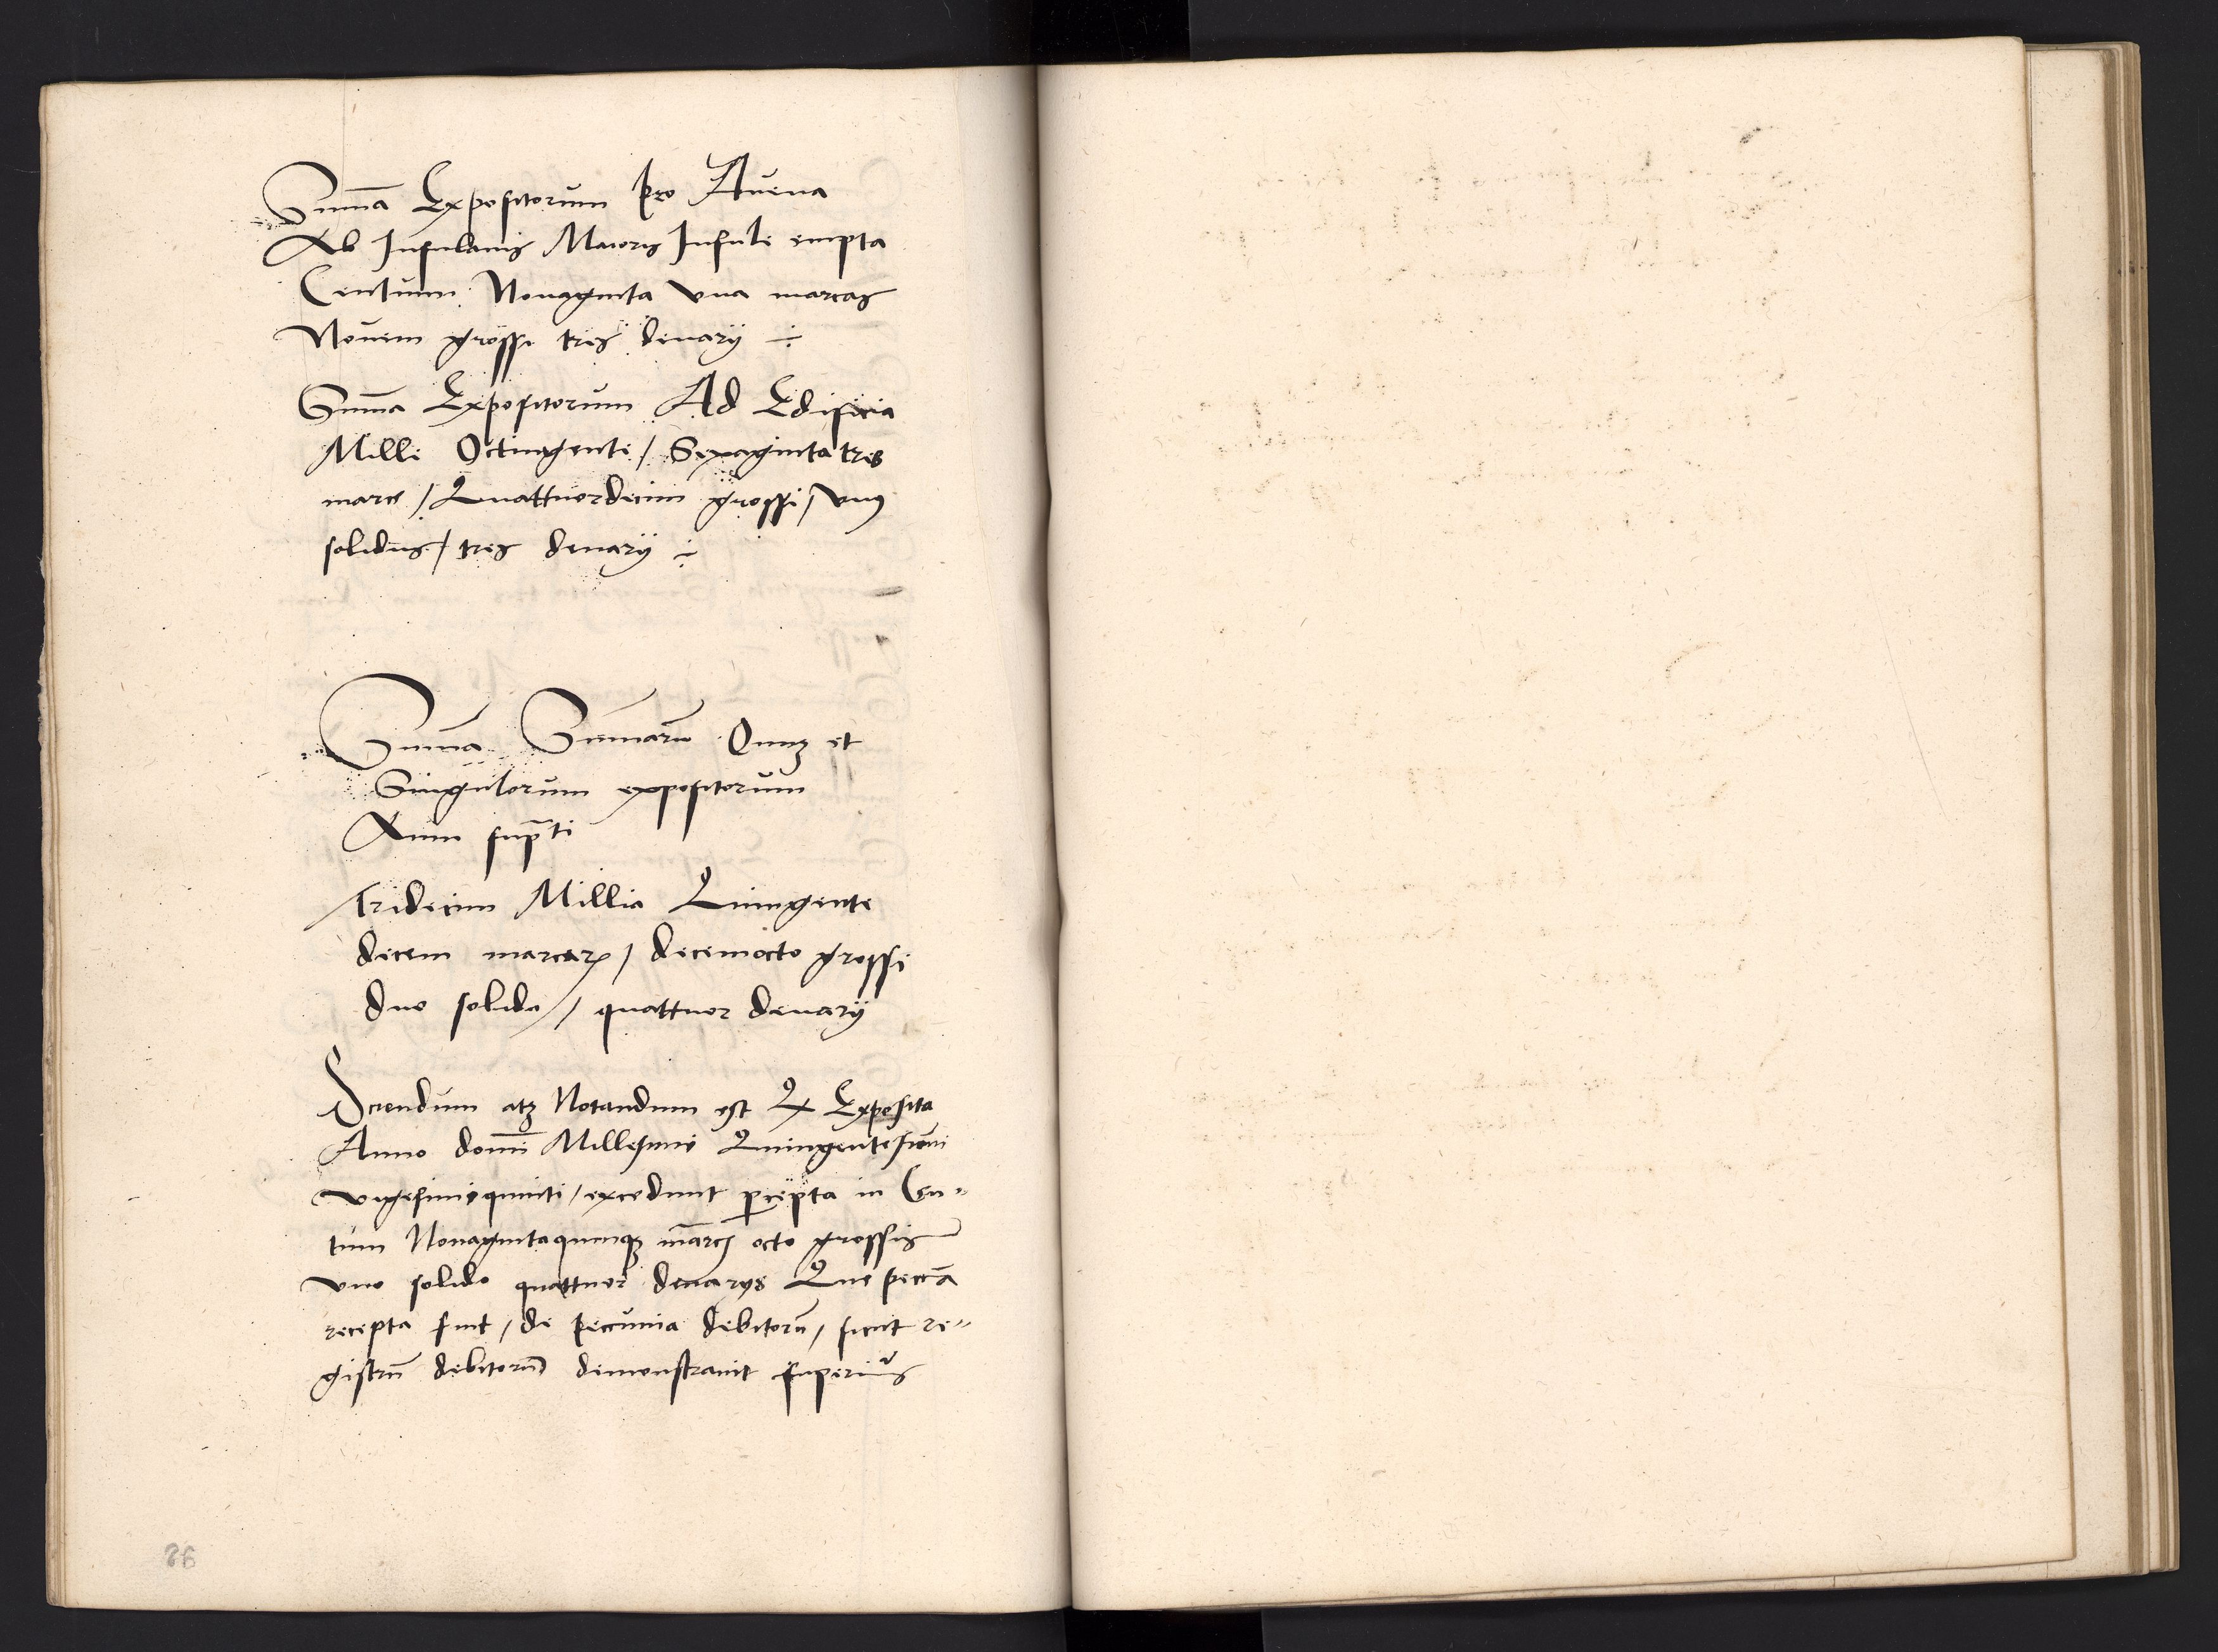 Summa Expositorum pro Auena
Ab Insulanis Maioris Insule empta
Centum Nonaginta vna marcas
Nouem grossi tres denarij ÷
Summa Expositorum Ad Edificia
Mille Octingente / Sexaginta tres
marce / Quattuordecim grossi / vnus
solidus / tres denarij ÷
Summa Summarum Omnium et
Singulorum expositorum
Anni supradicti
Tridecim Millia Quingente
decem marcarum / decemocto grossi
duo solidi / quattuor denarij
Sciendum atque Notandum est Quod Exposita
Anno domini Millesimo Quingentesimi
vigesimiquinti / excedunt percepta in Cen„
tum Nonagintaquinque marcis octo grossis
vno solido quattuor denarijs Que peccunia
recepta sunt / de peccunia debitorum / sicut re„
gistrum debitorum demonstrauit superius